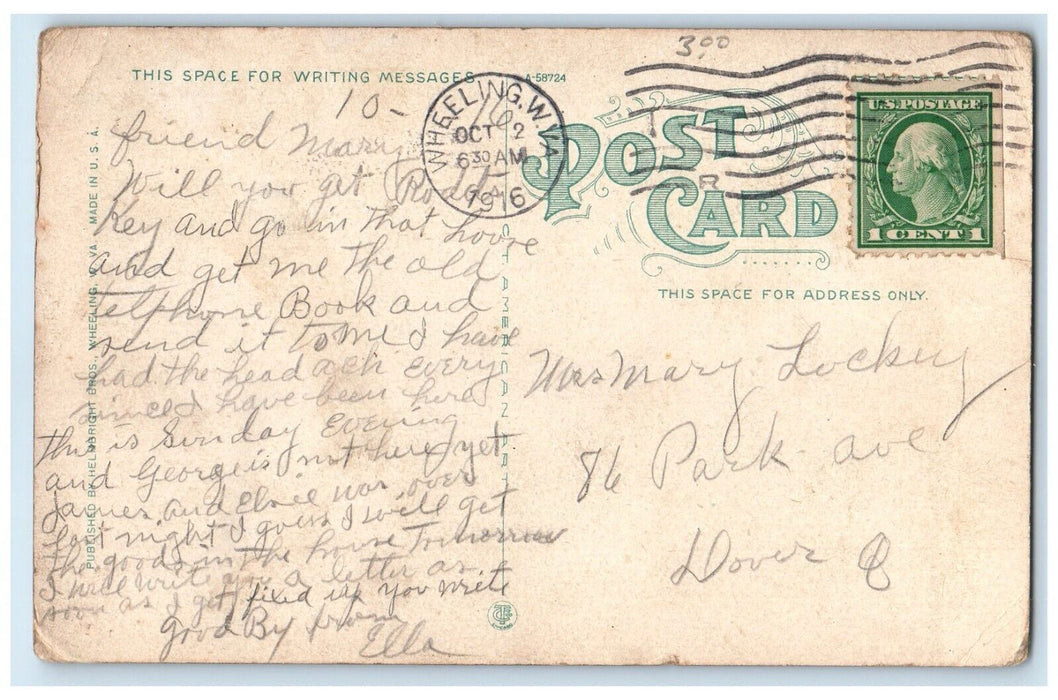 3.00
THIS SPACE FOR WRITING MESSAGES
A-58724
WHEELING, W. VA
OCT 2
6 30 AM
1916
U.S. POSTAGE
1 CENT 1
POST CARD
THIS SPACE FOR ADDRESS ONLY.
PUBLISHED BY HELMBRIGHT BROS., WHEELING, W. VA. MADE IN U. S. A.
C. T. AMERICAN ART
10-
friend Mary
Will you get
Key and go in that house
and get me the old
telphone Book and
send it to me I have
had the head ach every
since I have been here
this is Sunday Evening
and George is not here yet
James and Elsie was over
last night I guess I will get
the goods in the house Tomorrow
I will write you a letter as
soon as I get fixed up you write
good By from
Ella
Mrs Mary Lockey
86 Park ave
Dover O